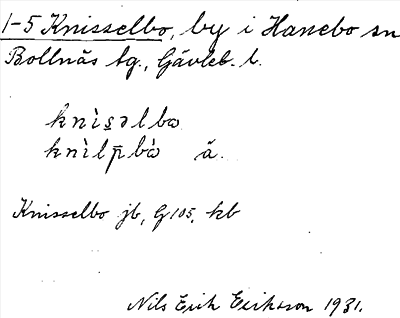 1-5 Knisselbo, by i Hanebo sn
Bollnäs tg., Gävleb. l.
knìsəlba
knìlp̄bà ä.
Knisselbo jb, G 105, kb
Nils Erik Eriksson 1931.